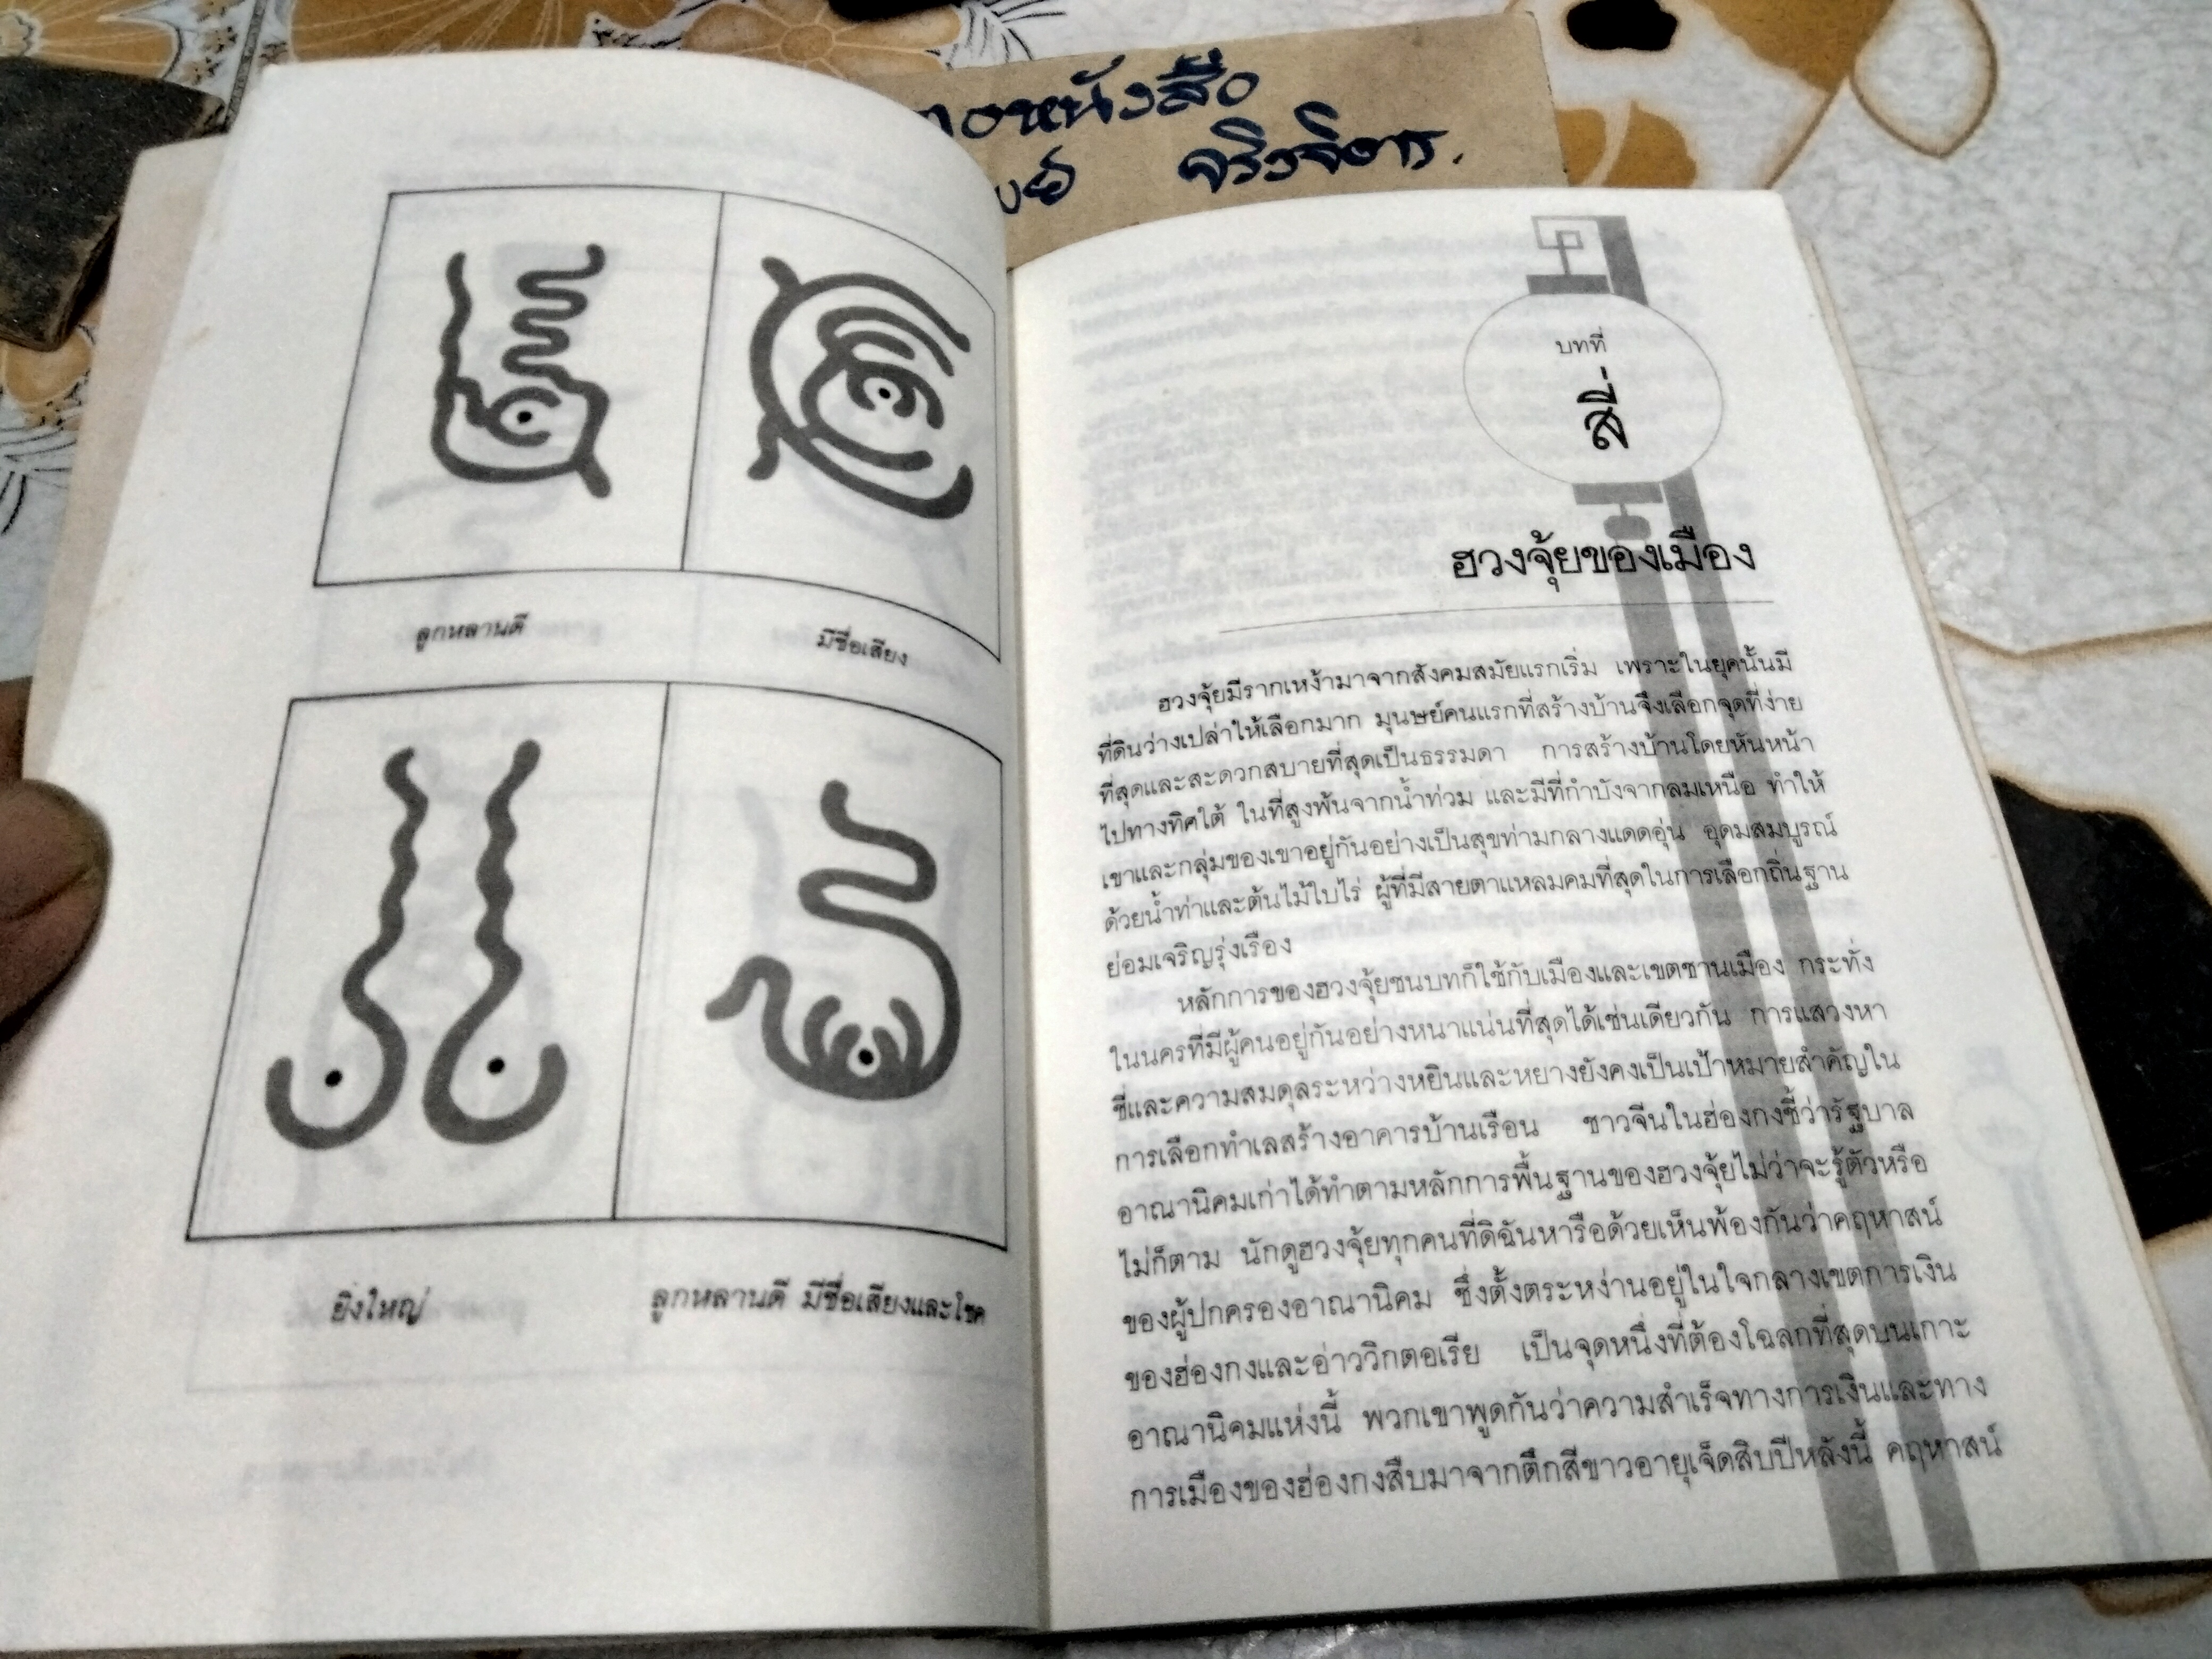 หนังสือ
จริงจิตร.
ลูกหลานดี
มีชื่อเสียง
ยิ่งใหญ่
ลูกหลานดี มีชื่อเสียงและโชค
บทที่
สี่
ฮวงจุ้ยของเมือง
ฮวงจุ้ยมีรากเหง้ามาจากสังคมสมัยแรกเริ่ม เพราะในยุคนั้นมี
ที่ดินว่างเปล่าให้เลือกมาก มนุษย์คนแรกที่สร้างบ้านจึงเลือกจุดที่ง่าย
ที่สุดและสะดวกสบายที่สุดเป็นธรรมดา การสร้างบ้านโดยหันหน้า
ไปทางทิศใต้ ในที่สูงพ้นจากน้ำท่วม และมีที่กำบังจากลมเหนือ ทำให้
เขาและกลุ่มของเขาอยู่กันอย่างเป็นสุขท่ามกลางแดดอุ่น อุดมสมบูรณ์
ด้วยน้ำท่าและต้นไม้ใบไร่ ผู้ที่มีสายตาแหลมคมที่สุดในการเลือกถิ่นฐาน
ย่อมเจริญรุ่งเรือง
หลักการของฮวงจุ้ยชนบทก็ใช้กับเมืองและเขตชานเมือง กระทั่ง
ในนครที่มีผู้คนอยู่กันอย่างหนาแน่นที่สุดได้เช่นเดียวกัน การแสวงหา
ชี่และความสมดุลระหว่างหยินและหยางยังคงเป็นเป้าหมายสำคัญใน
การเลือกทำเลสร้างอาคารบ้านเรือน ชาวจีนในฮ่องกงชี้ว่ารัฐบาล
อาณานิคมเก่าได้ทำตามหลักการพื้นฐานของฮวงจุ้ยไม่ว่าจะรู้ตัวหรือ
ไม่ก็ตาม นักดูฮวงจุ้ยทุกคนที่ดิฉันหารือด้วยเห็นพ้องกันว่าคฤหาสน์
ของผู้ปกครองอาณานิคม ซึ่งตั้งตระหง่านอยู่ในใจกลางเขตการเงิน
ของฮ่องกงและอ่าววิกตอเรีย เป็นจุดหนึ่งที่ต้องโฉลกที่สุดบนเกาะ
อาณานิคมแห่งนี้ พวกเขาพูดกันว่าความสำเร็จทางการเงินและทาง
การเมืองของฮ่องกงสืบมาจากตึกสีขาวอายุเจ็ดสิบปีหลังนี้ คฤหาสน์